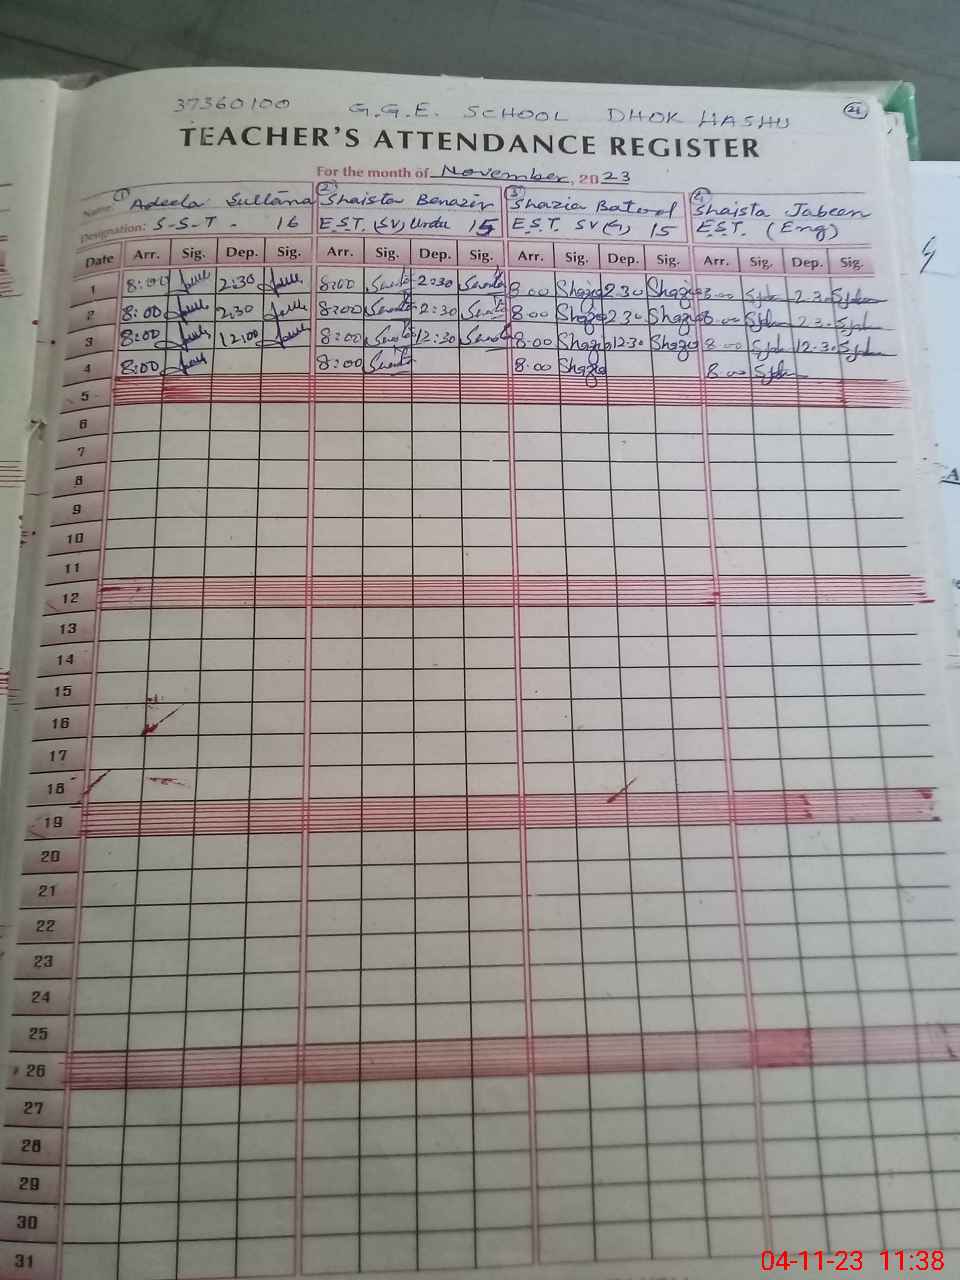 37360100 G.G.E. SCHOOL DHOK HASHU 24
TEACHER'S ATTENDANCE REGISTER
For the month of November, 2023
Name: 1 Adeela Sultana 2 Shaista Benazir 3 Shazia Batool 4 Shaista Jabeen
Designation: S-S-T. 16 E.S.T. (SV) Urdu 15 E.S.T. SV(G) 15 E.S.T. (Eng)
Date Arr. Sig. Dep. Sig. Arr. Sig. Dep. Sig. Arr. Sig. Dep. Sig. Arr. Sig. Dep. Sig.
1 8:00 2:30 8:00 2:30 8.00 Shazia 2.30 Shazia 8.00 2.30
2 8:00 2:30 8:00 2:30 8.00 Shazia 2.30 Shazia 8.00 2.30
3 8:00 12:00 8:00 12:30 8.00 Shazia 12.30 Shazia 8.00 12.30
4 8:00 8:00 8.00 Shazia 8.00
5
6
7
8
9
10
11
12
13
14
15
16
17
18
19
20
21
22
23
24
25
26
27
28
29
30
31
04-11-23 11:38